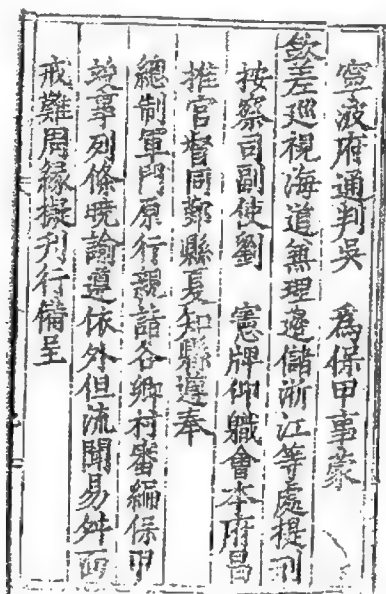 寧波府通判吳　為保甲事蒙
欽差巡視海道兼理邊儲浙江等處提刑
按察司副使劉　憲牌仰職會本府昌
推官督同鄞縣夏知縣遵奉
總制軍門原行親詣各鄉村審編保甲
竣事列條曉諭遵依外但流聞易舛而
戒難周緣擬刊行備呈